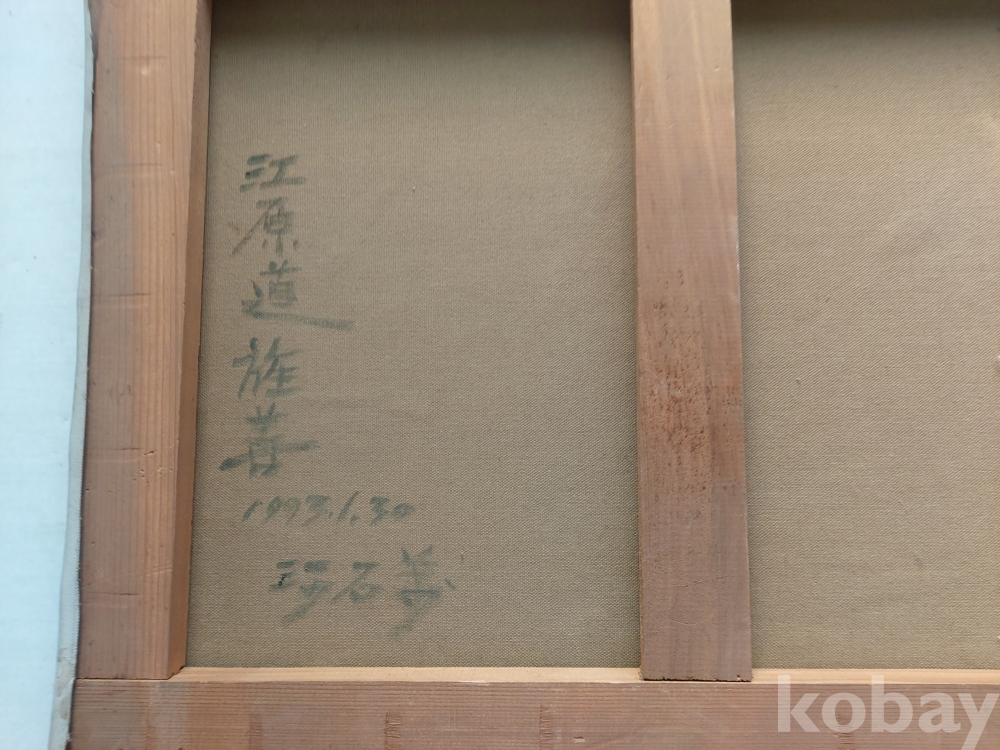 江原道 旌善
1993.1.30
石
kobay